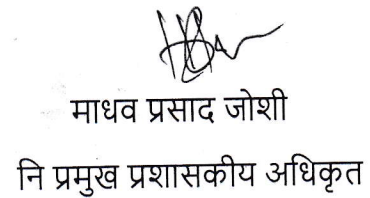 माधव प्रसाद जोशी
नि प्रमुख प्रशासकीय अधिकृत